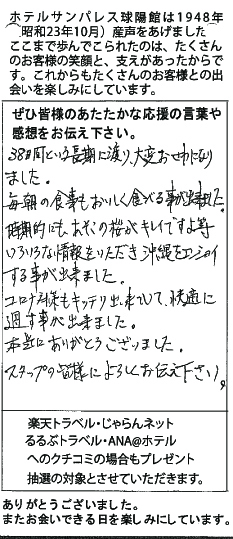 ホテルサンパレス球陽館は1948年
(昭和23年10月）産声をあげました
ここまで歩んでこられたのは、たくさん
のお客様の笑顔と、支えがあったからで
す。これからもたくさんのお客様との出
会いを楽しみにしています。
ぜひ皆様のあたたかな応援の言葉や
感想をお伝え下さい。
38日間という長期に渡り、大変お世話になり
ました。
毎朝の食事もおいしく食べる事が出来ました。
時期的にも、あそこの桜が、キレイですよ等
いろいろな情報をいただき沖縄をエンジョイ
する事が出来ました。
コロナ対策もキッチリ出来ていて、快適に
過す事が出来ました。
本当にありがとうございました。
スタッフの皆様によろしくお伝え下さい。
楽天トラベル・じゃらんネット
るるぶトラベル・ANA@ホテル
へのクチコミの場合もプレゼント
抽選の対象とさせていただきます。
ありがとうございました。
またお会いできる日を楽しみにしています。